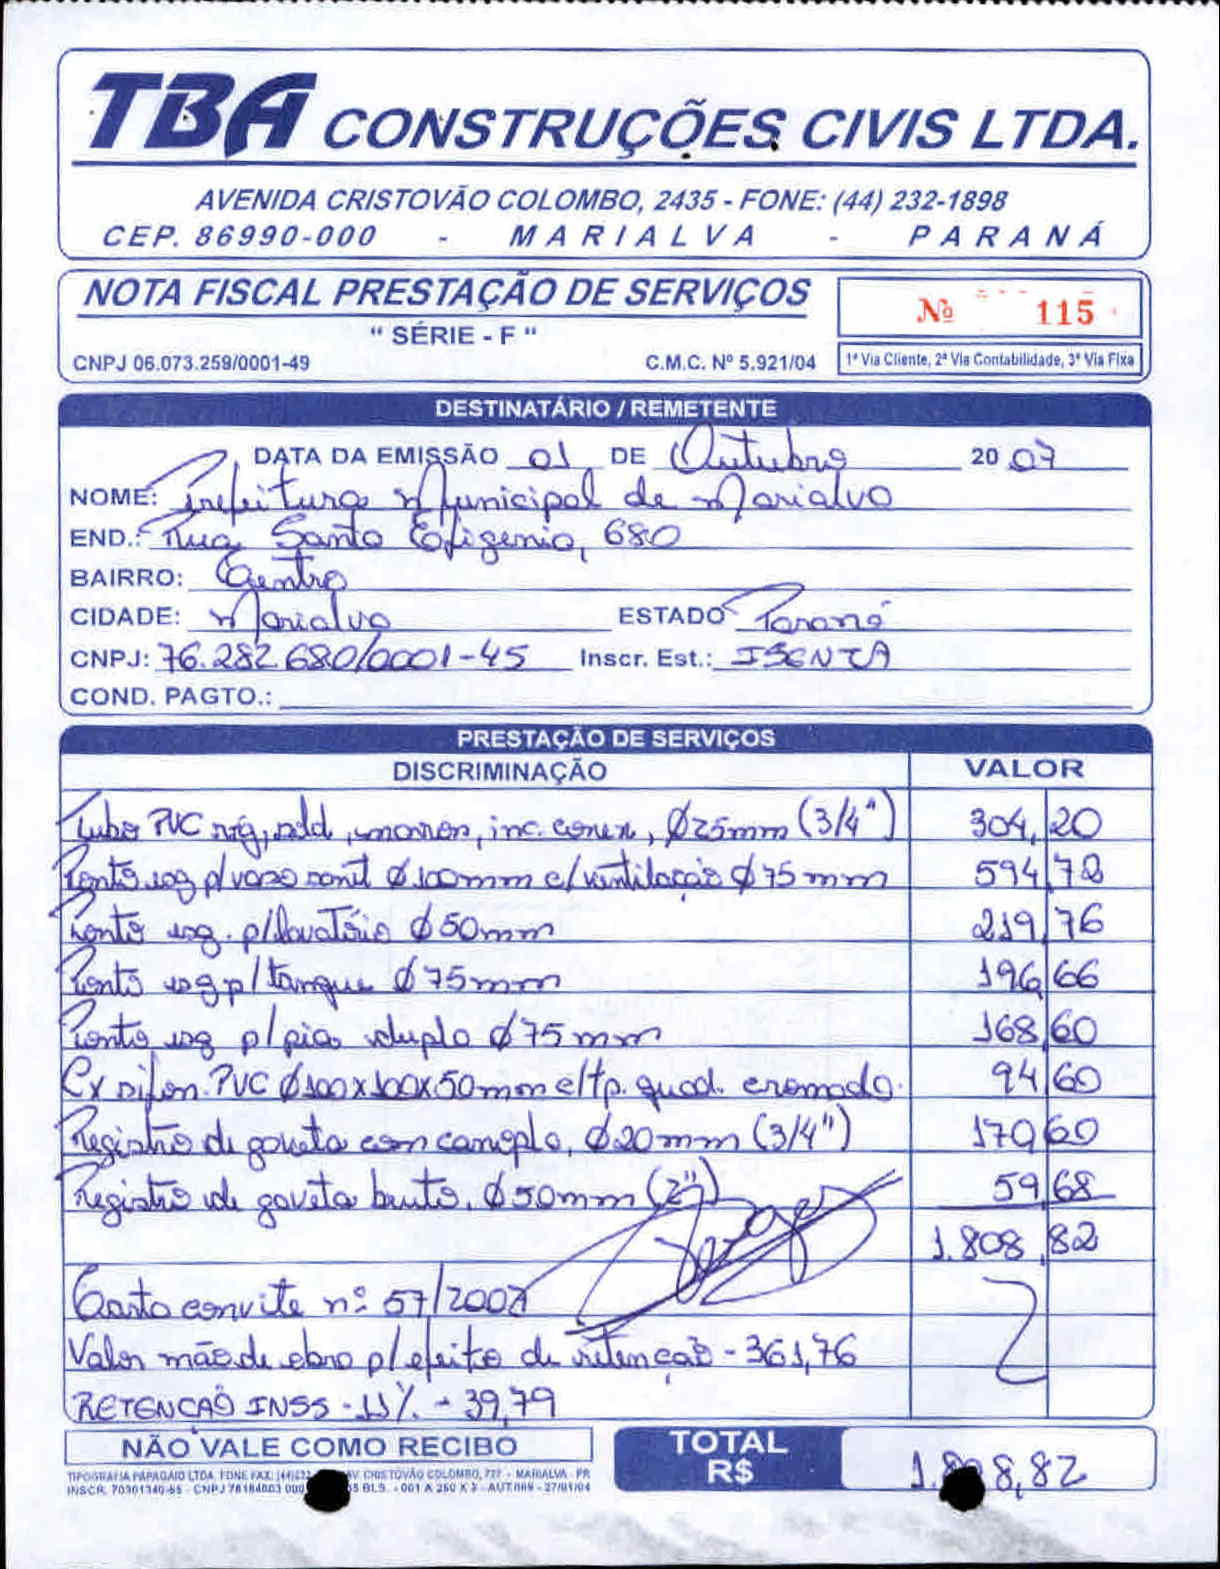 TBA CONSTRUÇÕES CIVIS LTDA.
AVENIDA CRISTOVÃO COLOMBO, 2435 - FONE: (44) 232-1898
CEP. 86990-000 - MARIALVA - PARANÁ
NOTA FISCAL PRESTAÇÃO DE SERVIÇOS
Nº 115
" SÉRIE - F "
CNPJ 06.073.259/0001-49 C.M.C. Nº 5.921/04
1ª Via Cliente, 2ª Via Contabilidade, 3ª Via Fixa
DESTINATÁRIO / REMETENTE
DATA DA EMISSÃO 01 DE Outubro 20 07
NOME: Prefeitura Municipal de Marialva
END.: Rua Santa Efigenia, 680
BAIRRO: Centro
CIDADE: Marialva ESTADO Paraná
CNPJ: 76.282.680/0001-45 Inscr. Est.: ISENTA
COND. PAGTO.:
PRESTAÇÃO DE SERVIÇOS
DISCRIMINAÇÃO VALOR
Tubo PVC rig, sold, marron, inc. conex, Ø25mm (3/4") 304,20
Ponto esg p/ vaso sanit Ø 100mm c/ ventilação Ø 75mm 594,72
Ponto esg. p/lavatório Ø 50mm 219,76
Ponto esg p/ tanque Ø 75mm 196,66
Ponto esg p/ pia dupla Ø 75mm 168,60
Cx sifon. PVC Ø100x100x50mm c/tp. quad. cromado. 94,60
Registro de gaveta com canopla, Ø20mm (3/4") 170,60
Registro de gaveta bruto, Ø50mm (2") 59,68
1.808,82
Carta convite nº 57/2007
Valor mão de obra p/ efeito de retenção - 361,76
RETENÇÃO INSS - 11% - 39,79
NÃO VALE COMO RECIBO
TOTAL R$ 1. 8,82
TIPOGRAFIA PAPAGAIO LTDA. FONE FAX: (44)232 AV. CRISTOVÃO COLOMBO, 777 - MARIALVA - PR
INSCR. 70301340-65 - CNPJ 78184003 000 5 BLS. - 001 A 250 X 3 - AUT. - 27/01/04